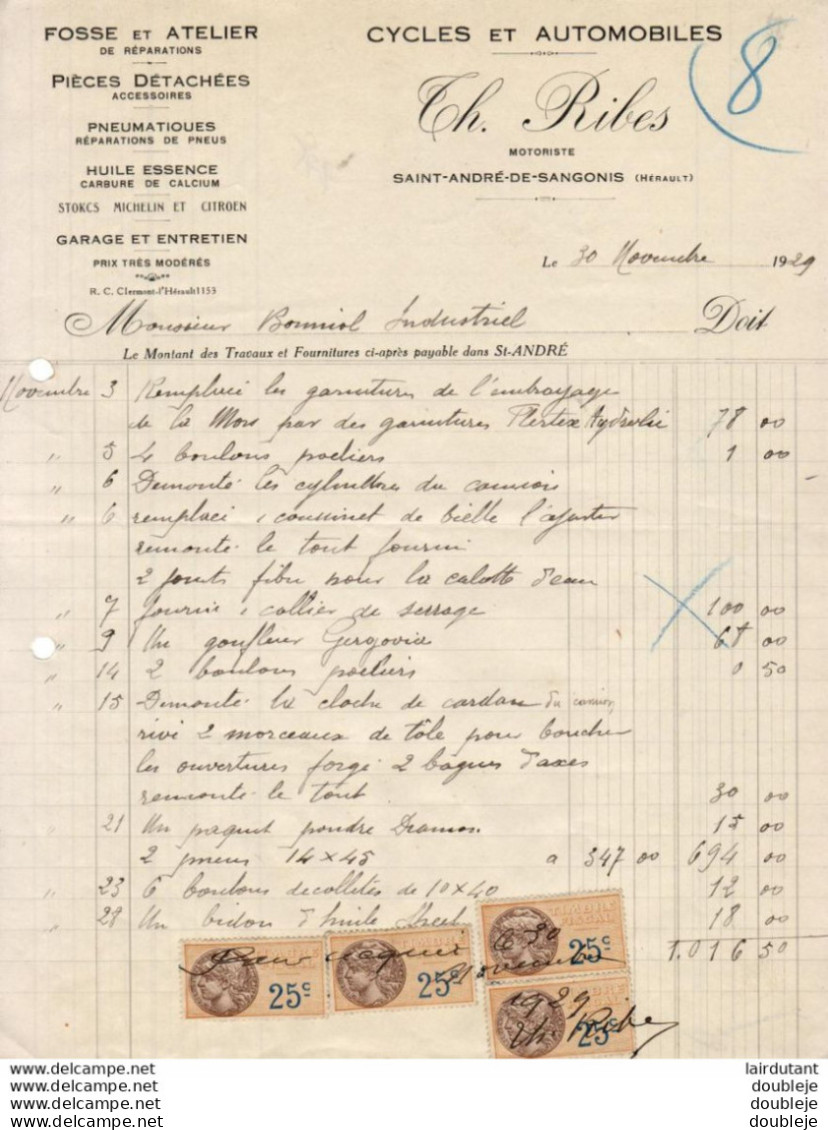 FOSSE ET ATELIER
DE RÉPARATIONS
PIÈCES DÉTACHÉES
ACCESSOIRES
PNEUMATIQUES
RÉPARATIONS DE PNEUS
HUILE ESSENCE
CARBURE DE CALCIUM
STOKCS MICHELIN ET CITROEN
GARAGE ET ENTRETIEN
PRIX TRÈS MODÉRÉS
R. C. Clermont-l'Hérault 1153
CYCLES ET AUTOMOBILES
8
Th. Ribes
MOTORISTE
SAINT-ANDRÉ-DE-SANGONIS (HÉRAULT)
Le 30 Novembre 1929
Monsieur Bonniol Industriel Doit
Le Montant des Travaux et Fournitures ci-après payable dans St-ANDRÉ
Novembre 3 Remplacé les garnitures de l'embrayage
de la Mors par des garnitures 78 00
" 5 4 boulons poeliers 1 00
" 6 Demonté les cylindres du camion
" 6 remplacé 1 coussinet de bielle l'ajuster
remonté le tout fourni
2 joints fibre pour la calotte d'eau
" 7 fourni 1 collier de serrage 100 00
" 9 Un gonfleur Gergovia 68 00
" 14 2 boulons poeliers 0 50
" 15 Demonté la cloche de cardan du camion
rivé 2 morceaux de tôle pour boucher
les ouvertures forgé 2 bagues d'axes
remonté le tout 30 00
" 21 Un paquet poudre 15 00
2 pneus 14x45 a 347 00 694 00
" 23 6 boulons decolletés de 10x40 12 00
" 28 Un bidon d'huile 18 00
1.016 50
Pour acquit le 30
Novembre
1929
Th. Ribes
25c
25c
25c
25c
www.delcampe.net
www.delcampe.net
www.delcampe.net
www.delcampe.net
lairdutant
doubleje
doubleje
doubleje